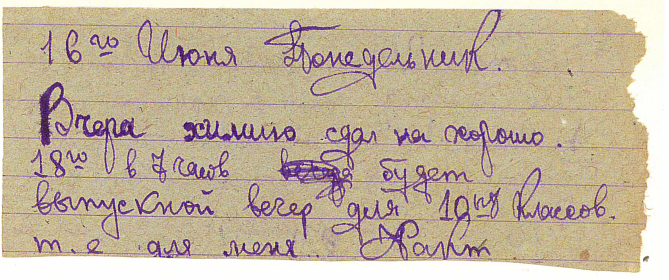 16го Июня Понедельник.
Вчера химию сдал на хорошо.
18го в 7 часов будет
выпускной вечер для 10ых классов.
т.е для меня. Факт